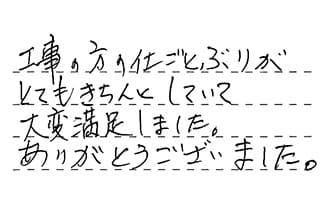 工事の方の仕ごとぶりが
とてもきちんとしていて
大変満足しました。
ありがとうございました。